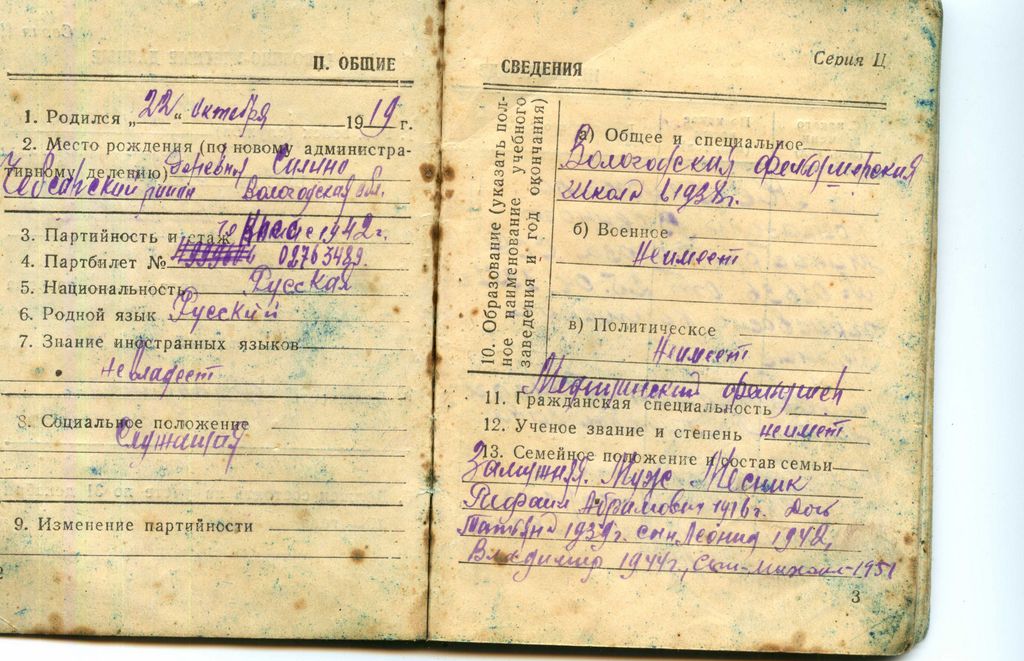 П. ОБЩИЕ
1. Родился „22“ октября 1919 г.
2. Место рождения (по новому администра-
тивному делению) деревня Силино
район Вологодская обл.
3. Партийность и стаж 1942 г.
4. Партбилет № 02763489.
5. Национальность Русская
6. Родной язык Русский
7. Знание иностранных языков
не владеет
8. Социальное положение
Служащая
9. Изменение партийности
2
СВЕДЕНИЯ
Серия Ц
10. Образование (указать пол-
ное наименование учебного
заведения и год окончания)
а) Общее и специальное
Вологодская фельдшерская
школа в 1938 г.
б) Военное
Не имеет
в) Политическое
Не имеет
Медицинский фельдшер
11. Гражданская специальность
12. Ученое звание и степень не имеет
13. Семейное положение и состав семьи
Замужняя. Муж Месник
Абрамович 1916 г. дочь
1939 г. сын Леонид 1942,
Владимир 1944 г., сын-Михаил-1951
3